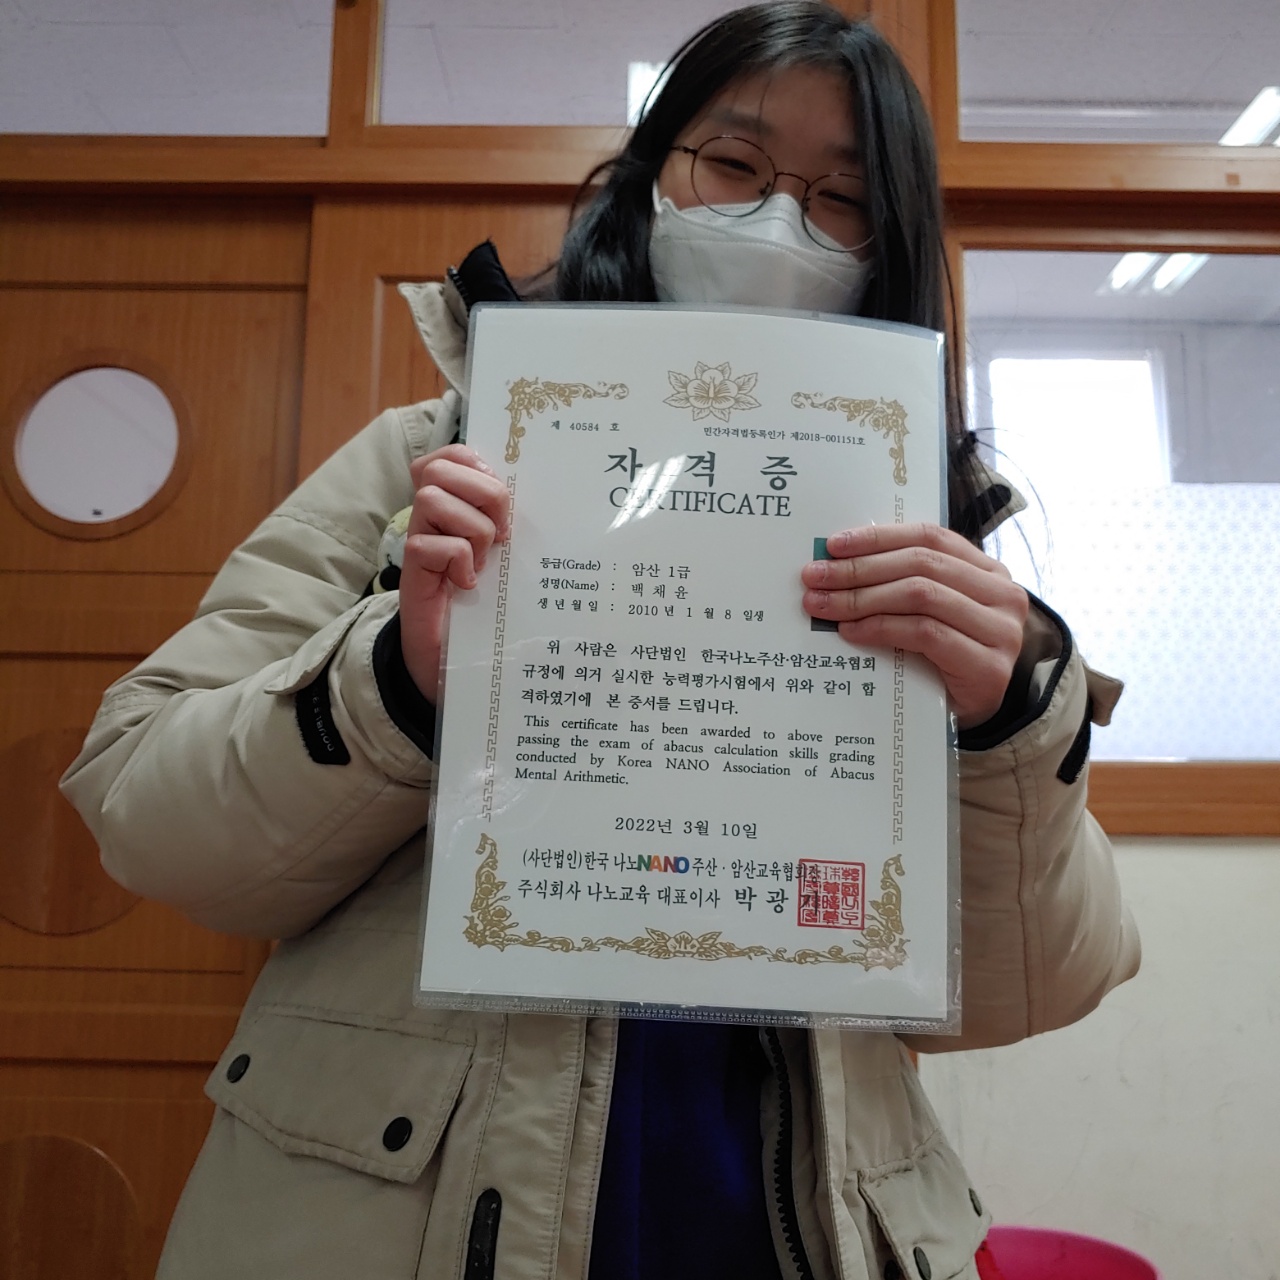 제 40584 호
민간자격법등록인가 제2018-001151호
자 격 증
CERTIFICATE
등급(Grade) : 암산 1급
성명(Name) : 백 채 윤
생 년 월 일 : 2010 년 1 월 8 일생
위 사람은 사단법인 한국나노주산·암산교육협회
규정에 의거 실시한 능력평가시험에서 위와 같이 합
격하였기에 본 증서를 드립니다.
This certificate has been awarded to above person
passing the exam of abacus calculation skills grading
conducted by Korea NANO Association of Abacus
Mental Arithmetic.
2022년 3월 10일
(사단법인)한국 나노NANO 주산 · 암산교육협회장
주식회사 나노교육 대표이사 박 광